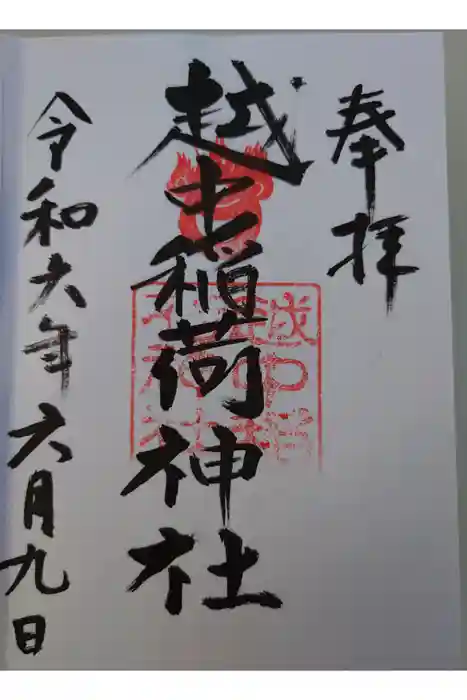 奉拝
越中稲荷神社
令和六年六月九日